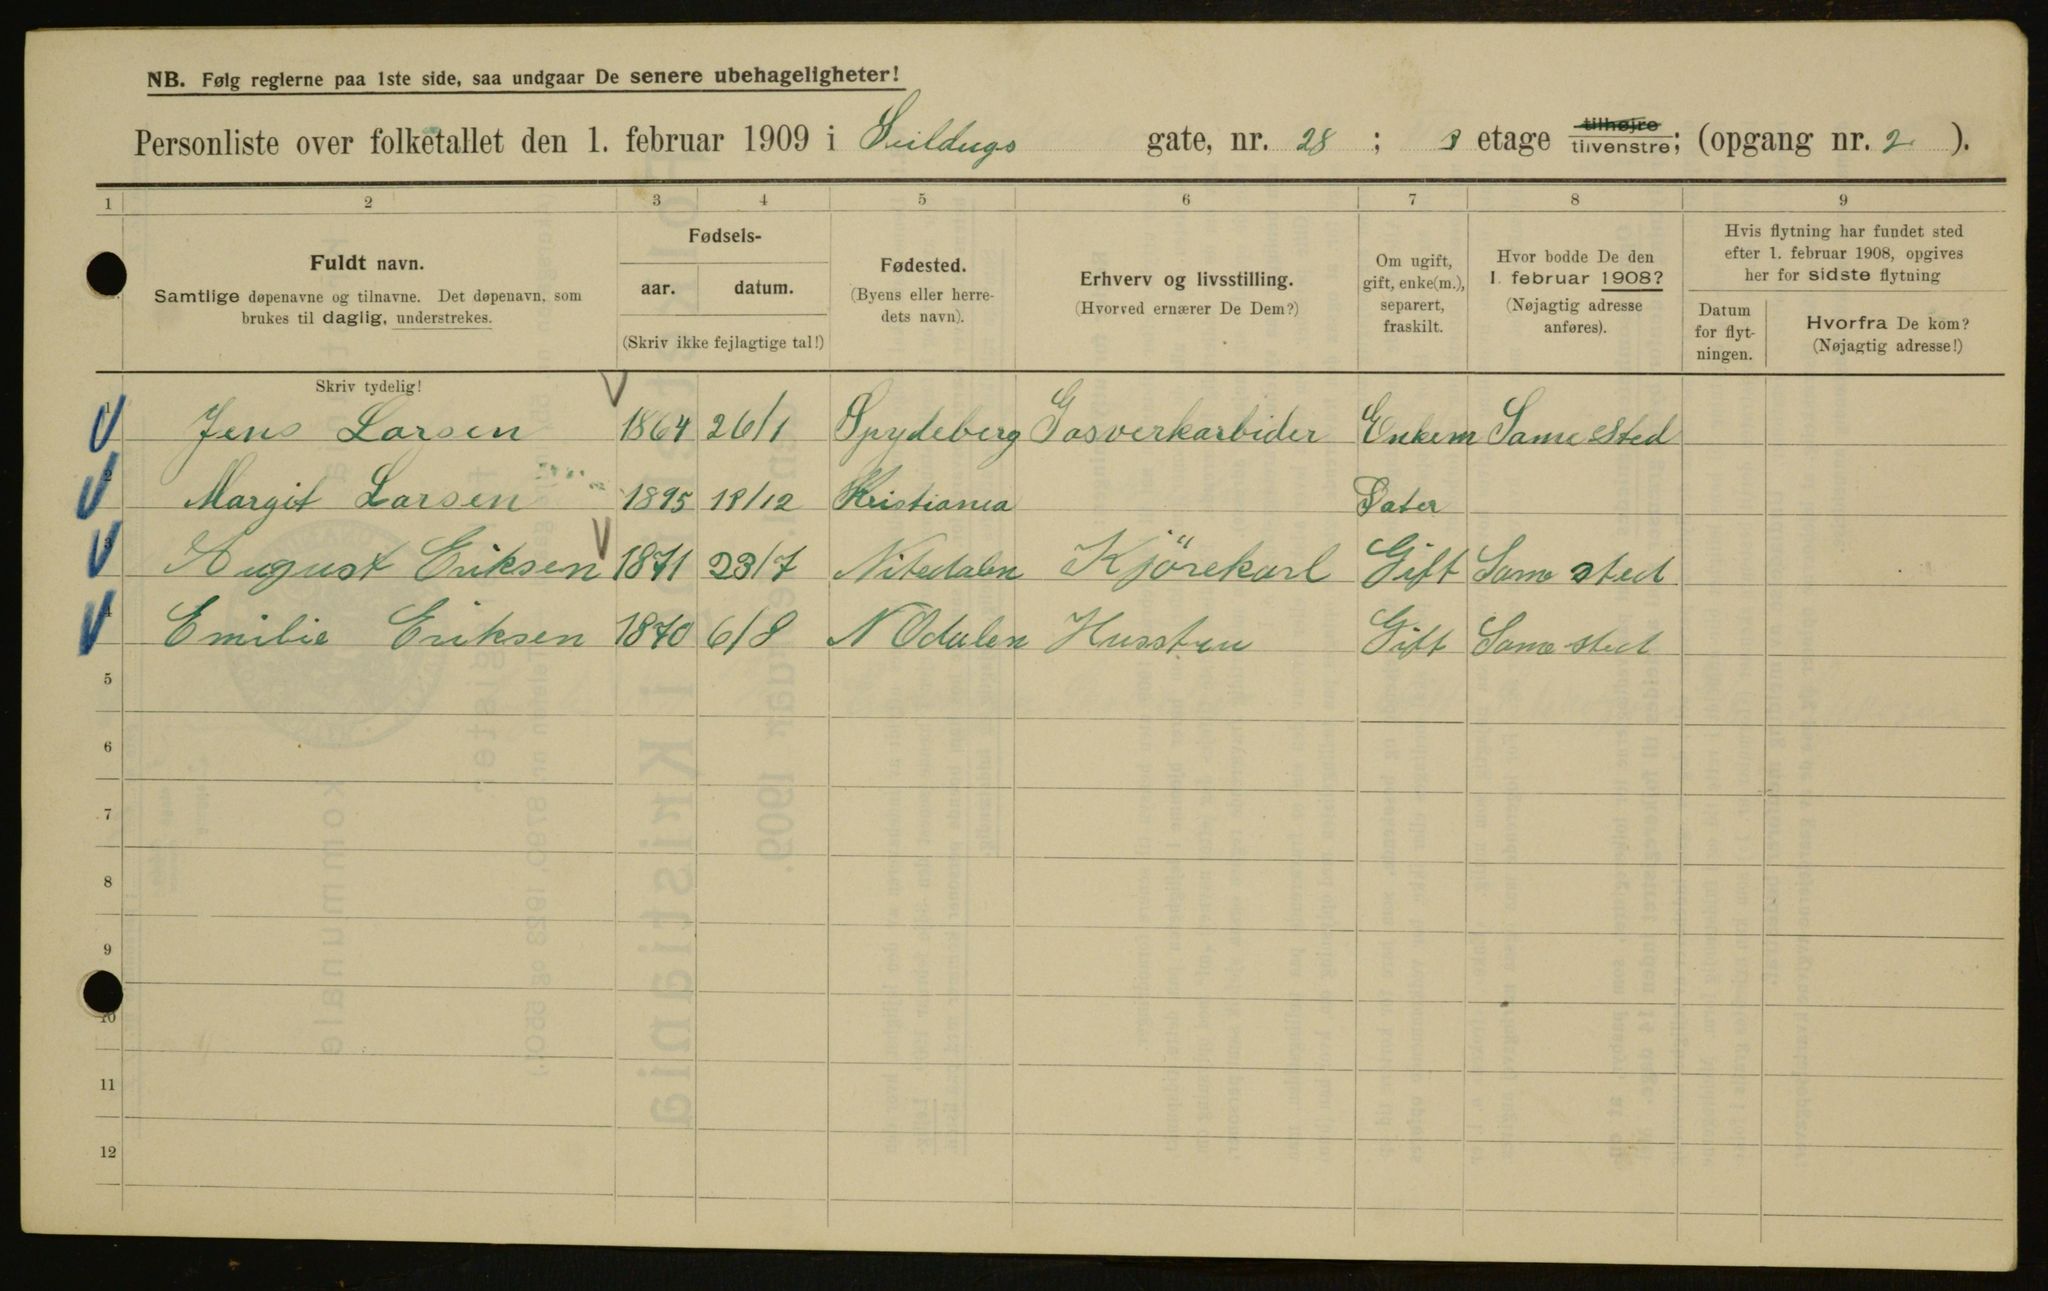 NB. Følg reglerne paa 1ste side, saa undgaar De senere ubehageligheter!
Personliste over folketallet den 1. februar 1909 i Seildugs gate, nr. 28 ; 3 etage tilhøjre tilvenstre; (opgang nr. 2 ).
1 2 3 4 5 6 7 8 9
Fuldt navn.
Samtlige døpenavne og tilnavne. Det døpenavn, som
brukes til daglig, understrekes.
Fødsels-
aar. datum.
(Skriv ikke fejlagtige tal!)
Fødested.
(Byens eller herre-
dets navn).
Erhverv og livsstilling.
(Hvorved ernærer De Dem?)
Om ugift,
gift, enke(m.),
separert,
fraskilt.
Hvor bodde De den
1. februar 1908?
(Nøjagtig adresse
anføres).
Hvis flytning har fundet sted
efter 1. februar 1908, opgives
her for sidste flytning
Datum
for flyt-
ningen.
Hvorfra De kom?
(Nøjagtig adresse!)
Skriv tydelig!
1 Jens Larsen 1864 26/1 Spydeberg Gasverkarbider Enkem Samested
2 Margit Larsen 1895 18/12 Kristiania Dater
3 August Eriksen 1871 23/7 Nitedalen Kjörekarl Gift Samested
4 Emilie Eriksen 1870 6/8 N Odalen Husstru Gift Samested
5
6
7
8
9
10
11
12